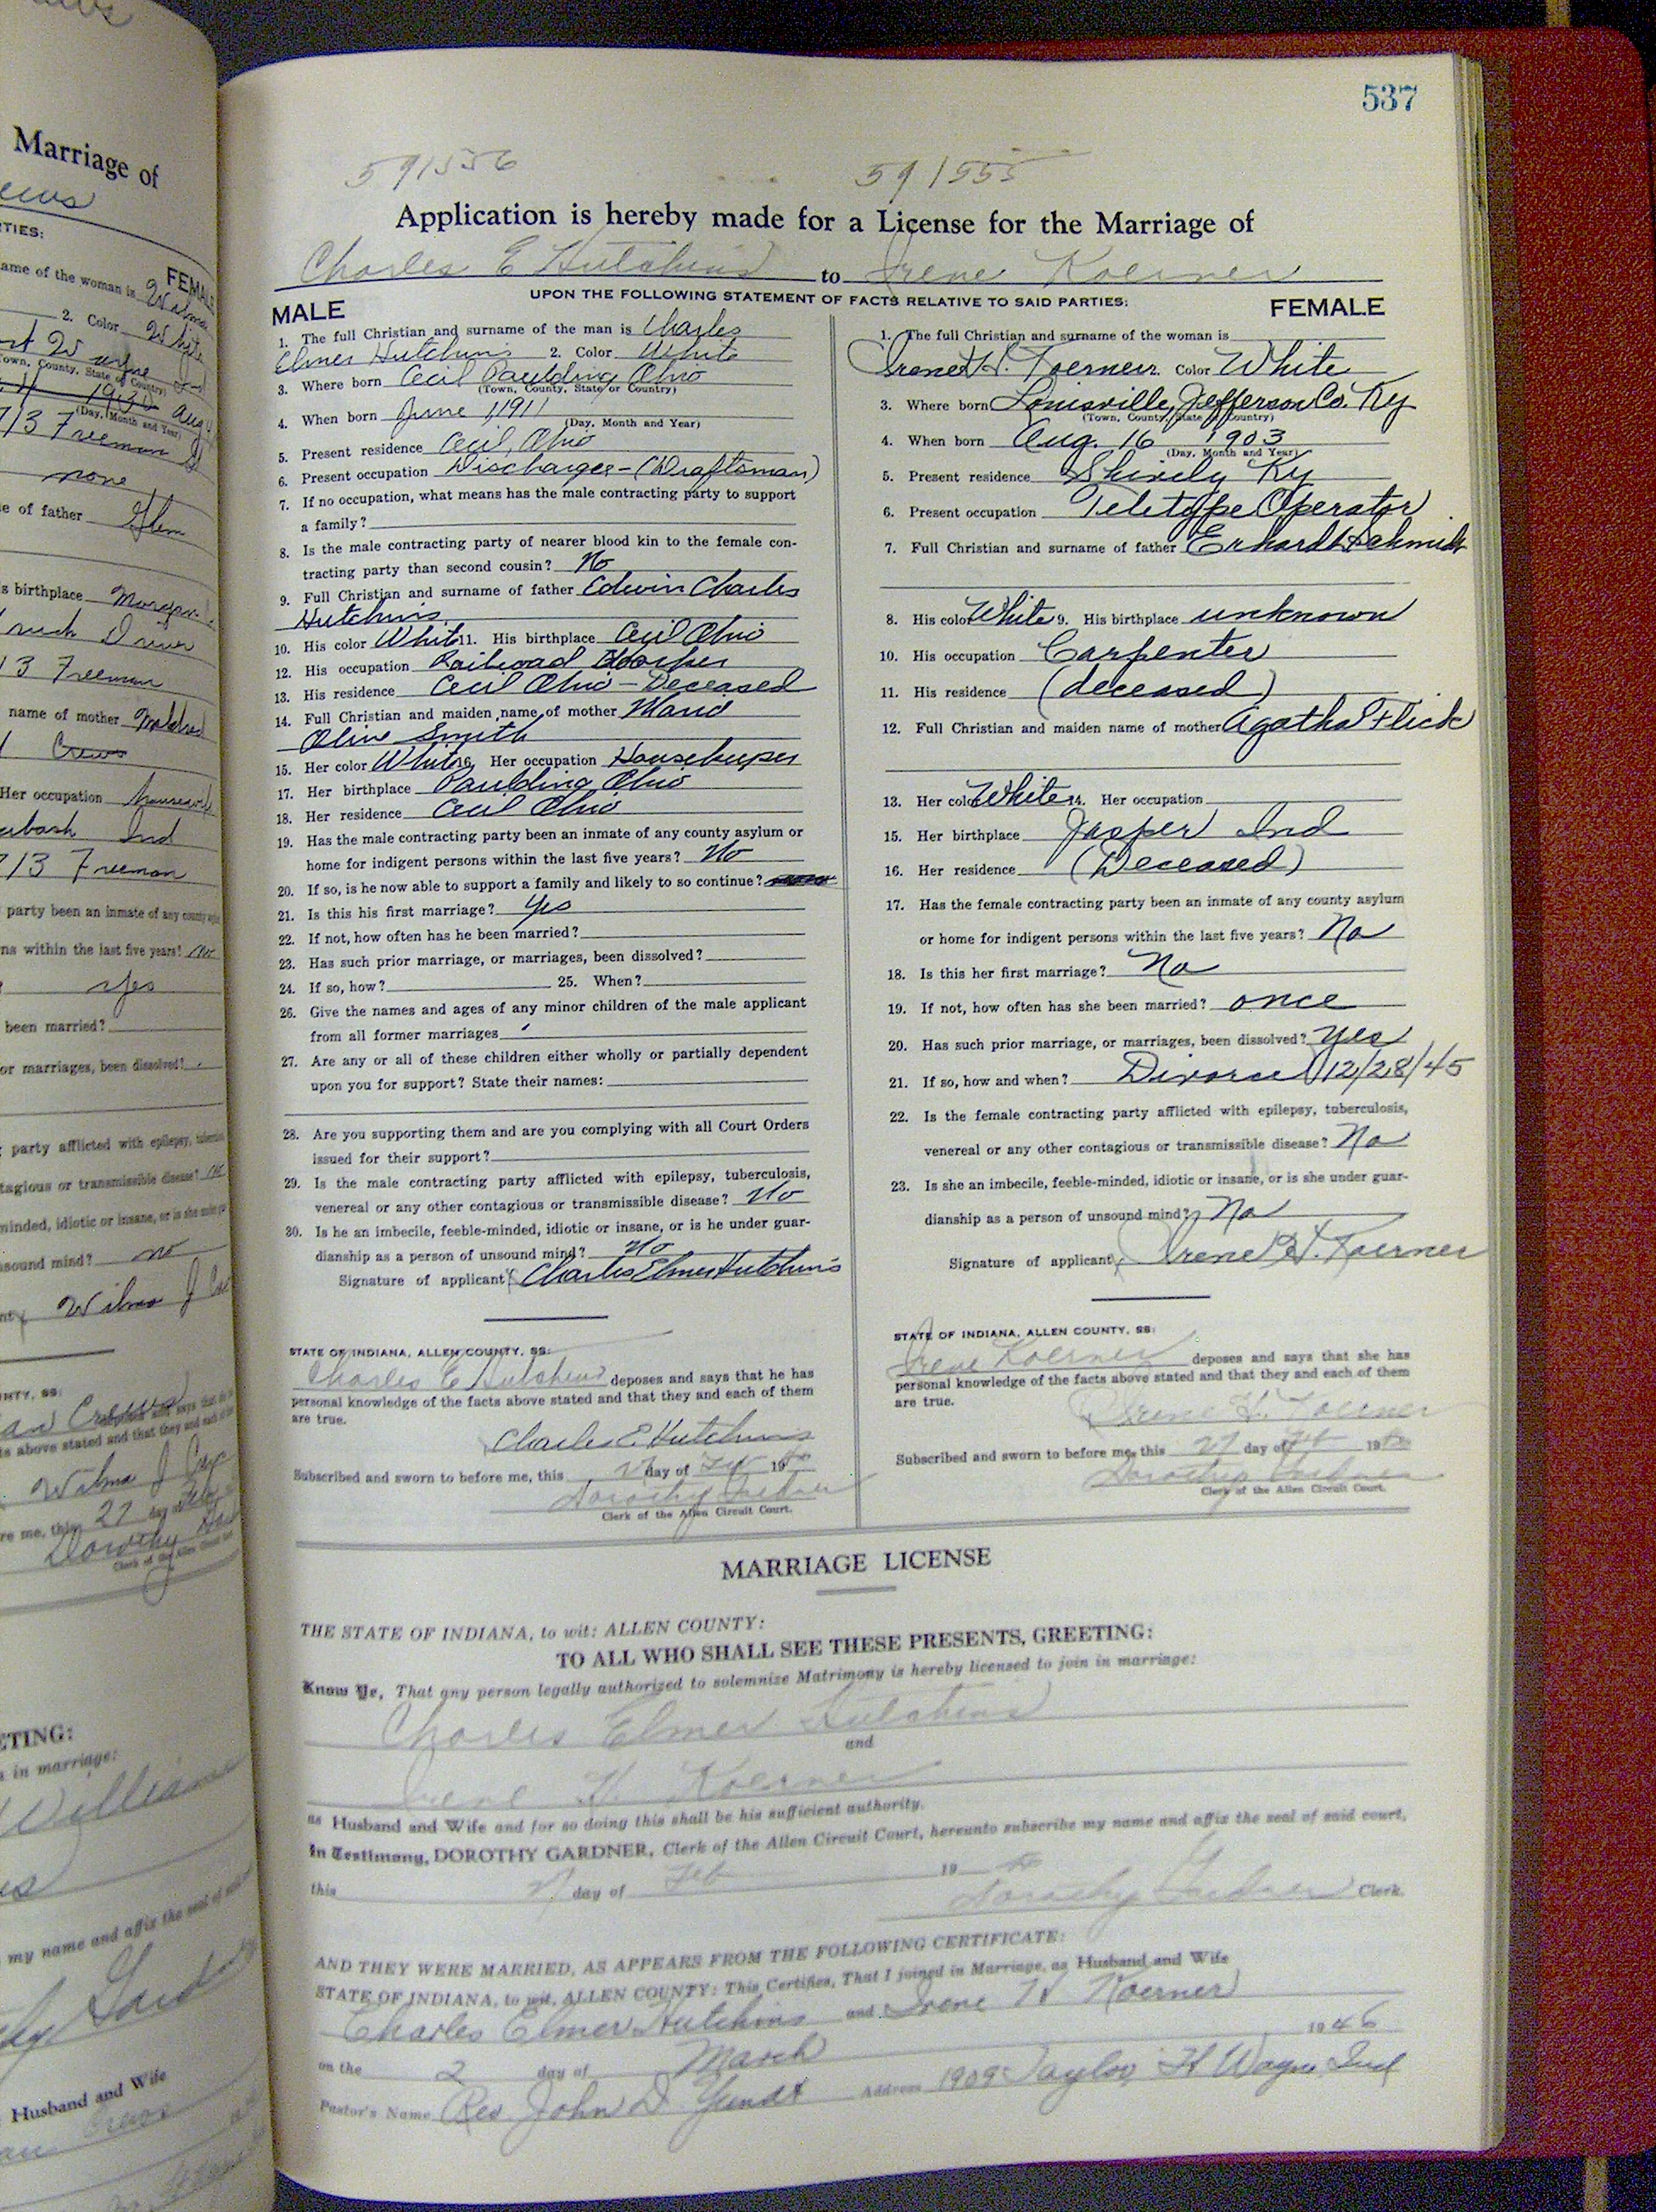 Marriage of
TIES:
FEMALE
ame of the woman is
2. Color White
(Day, Month and Year)
713 Freeman
none
e of father Glen
s birthplace
13 Freeman
name of mother
Crews
Her occupation
Ind
713 Freeman
party been an inmate of any county
ns within the last five years? no
yes
been married?
or marriages, been dissolved?
party afflicted with epilepsy,
tagious or transmissible disease?
minded, idiotic or insane, or is she
sound mind? no
Wilma J
an Crews
ts above stated and that they and each of
Wilma J
re me, this 27
Dorothy
ETING:
in marriage:
my name and affix the seal of
Husband and Wife
537
591556 591555
Application is hereby made for a License for the Marriage of
Charles E Hutchins to Irene Koerner
UPON THE FOLLOWING STATEMENT OF FACTS RELATIVE TO SAID PARTIES:
MALE
1. The full Christian and surname of the man is Charles
Elmer Hutchins 2. Color White
3. Where born Cecil Paulding Ohio
(Town, County, State or Country)
4. When born June 1 1911
(Day, Month and Year)
5. Present residence Cecil, Ohio
6. Present occupation Dischargee - (Draftsman)
7. If no occupation, what means has the male contracting party to support
a family?
8. Is the male contracting party of nearer blood kin to the female con-
tracting party than second cousin? No
9. Full Christian and surname of father Edwin Charles
Hutchins
10. His color White 11. His birthplace Cecil Ohio
12. His occupation Railroad
13. His residence Cecil Ohio - Deceased
14. Full Christian and maiden name of mother
Olive Smith
15. Her color White 16. Her occupation Housekeeper
17. Her birthplace Paulding Ohio
18. Her residence Cecil Ohio
19. Has the male contracting party been an inmate of any county asylum or
home for indigent persons within the last five years? No
20. If so, is he now able to support a family and likely to so continue?
21. Is this his first marriage? Yes
22. If not, how often has he been married?
23. Has such prior marriage, or marriages, been dissolved?
24. If so, how? 25. When?
26. Give the names and ages of any minor children of the male applicant
from all former marriages
27. Are any or all of these children either wholly or partially dependent
upon you for support? State their names:
28. Are you supporting them and are you complying with all Court Orders
issued for their support?
29. Is the male contracting party afflicted with epilepsy, tuberculosis,
venereal or any other contagious or transmissible disease? No
30. Is he an imbecile, feeble-minded, idiotic or insane, or is he under guar-
dianship as a person of unsound mind? No
Signature of applicant Charles Elmer Hutchins
STATE OF INDIANA, ALLEN COUNTY, SS:
Charles E Hutchins deposes and says that he has
personal knowledge of the facts above stated and that they and each of them
are true.
Charles E. Hutchins
Subscribed and sworn to before me, this 27 day of Feb 19
Dorothy Gardner
Clerk of the Allen Circuit Court.
FEMALE
1. The full Christian and surname of the woman is
Irene H. Koerner 2. Color White
3. Where born Louisville, Jefferson Co. Ky
(Town, County, State of Country)
4. When born Aug. 16 1903
(Day, Month and Year)
5. Present residence Shively Ky
6. Present occupation Teletype Operator
7. Full Christian and surname of father Erhardt Schmidt
8. His color White 9. His birthplace unknown
10. His occupation Carpenter
11. His residence (deceased)
12. Full Christian and maiden name of mother Agatha Flick
13. Her color White 14. Her occupation
15. Her birthplace Jasper Ind
16. Her residence (Deceased)
17. Has the female contracting party been an inmate of any county asylum
or home for indigent persons within the last five years? No
18. Is this her first marriage? No
19. If not, how often has she been married? once
20. Has such prior marriage, or marriages, been dissolved? yes
21. If so, how and when? Divorce 12/28/45
22. Is the female contracting party afflicted with epilepsy, tuberculosis,
venereal or any other contagious or transmissible disease? No
23. Is she an imbecile, feeble-minded, idiotic or insane, or is she under guar-
dianship as a person of unsound mind? No
Signature of applicant Irene H. Koerner
STATE OF INDIANA, ALLEN COUNTY, SS:
Irene Koerner deposes and says that she has
personal knowledge of the facts above stated and that they and each of them
are true.
Irene H. Koerner
Subscribed and sworn to before me, this 27 day of Feb 19
Dorothy Gardner
Clerk of the Allen Circuit Court.
MARRIAGE LICENSE
THE STATE OF INDIANA, to wit: ALLEN COUNTY:
TO ALL WHO SHALL SEE THESE PRESENTS, GREETING:
Know Ye, That any person legally authorized to solemnize Matrimony is hereby licensed to join in marriage:
Charles Elmer Hutchins
and
Irene H. Koerner
as Husband and Wife and for so doing this shall be his sufficient authority.
In Testimony, DOROTHY GARDNER, Clerk of the Allen Circuit Court, hereunto subscribe my name and affix the seal of said court,
this 27 day of Feb 19
Dorothy Gardner Clerk.
AND THEY WERE MARRIED, AS APPEARS FROM THE FOLLOWING CERTIFICATE:
STATE OF INDIANA, to wit, ALLEN COUNTY: This Certifies, That I joined in Marriage, as Husband and Wife
Charles Elmer Hutchins and Irene H Koerner
on the 2 day of March 1946
Pastor's Name Rev. John D. Yundt Address 1909 Taylor Ft Wayne Ind